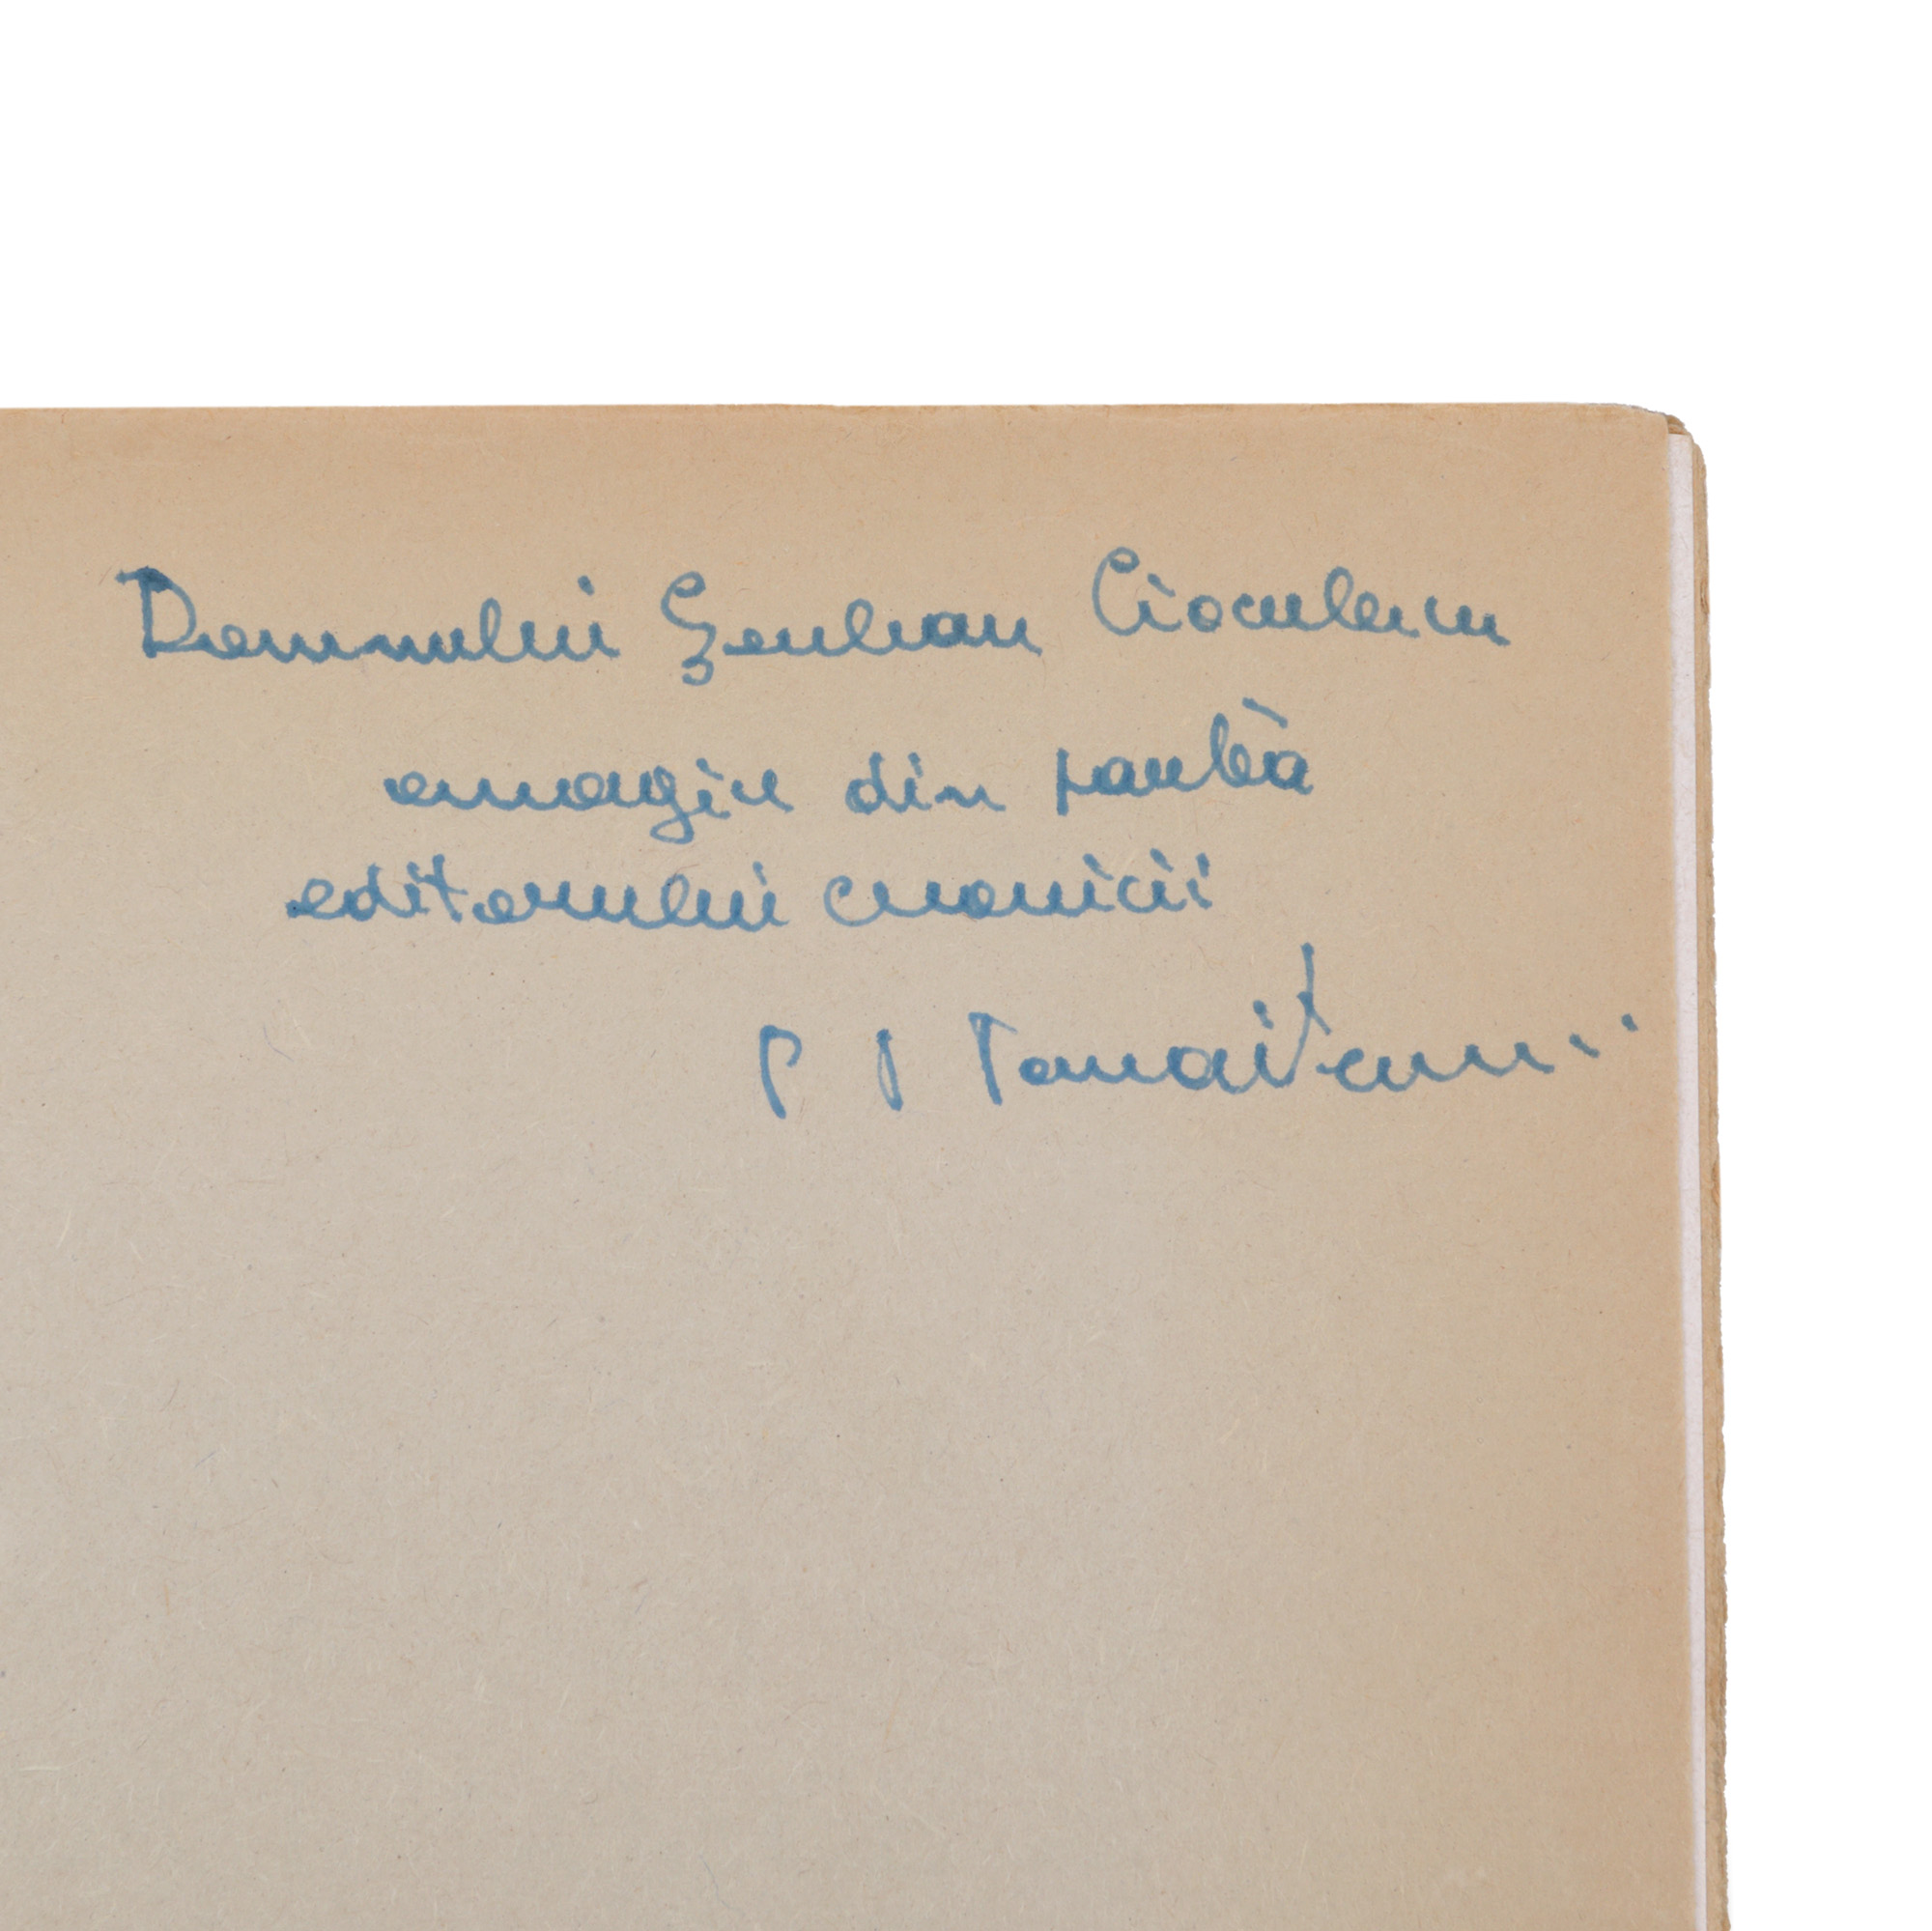 Domnului Șerban Cioculescu
omagiu din partea
editorului cronicii
P P Panaitescu